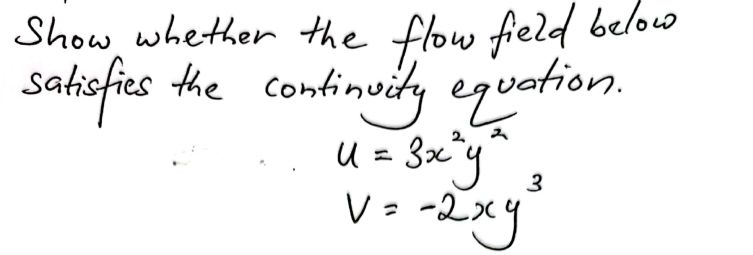 Show whether the flow field below
satisfies the continuity equation.
u = 3x²y²
V = -2xy³